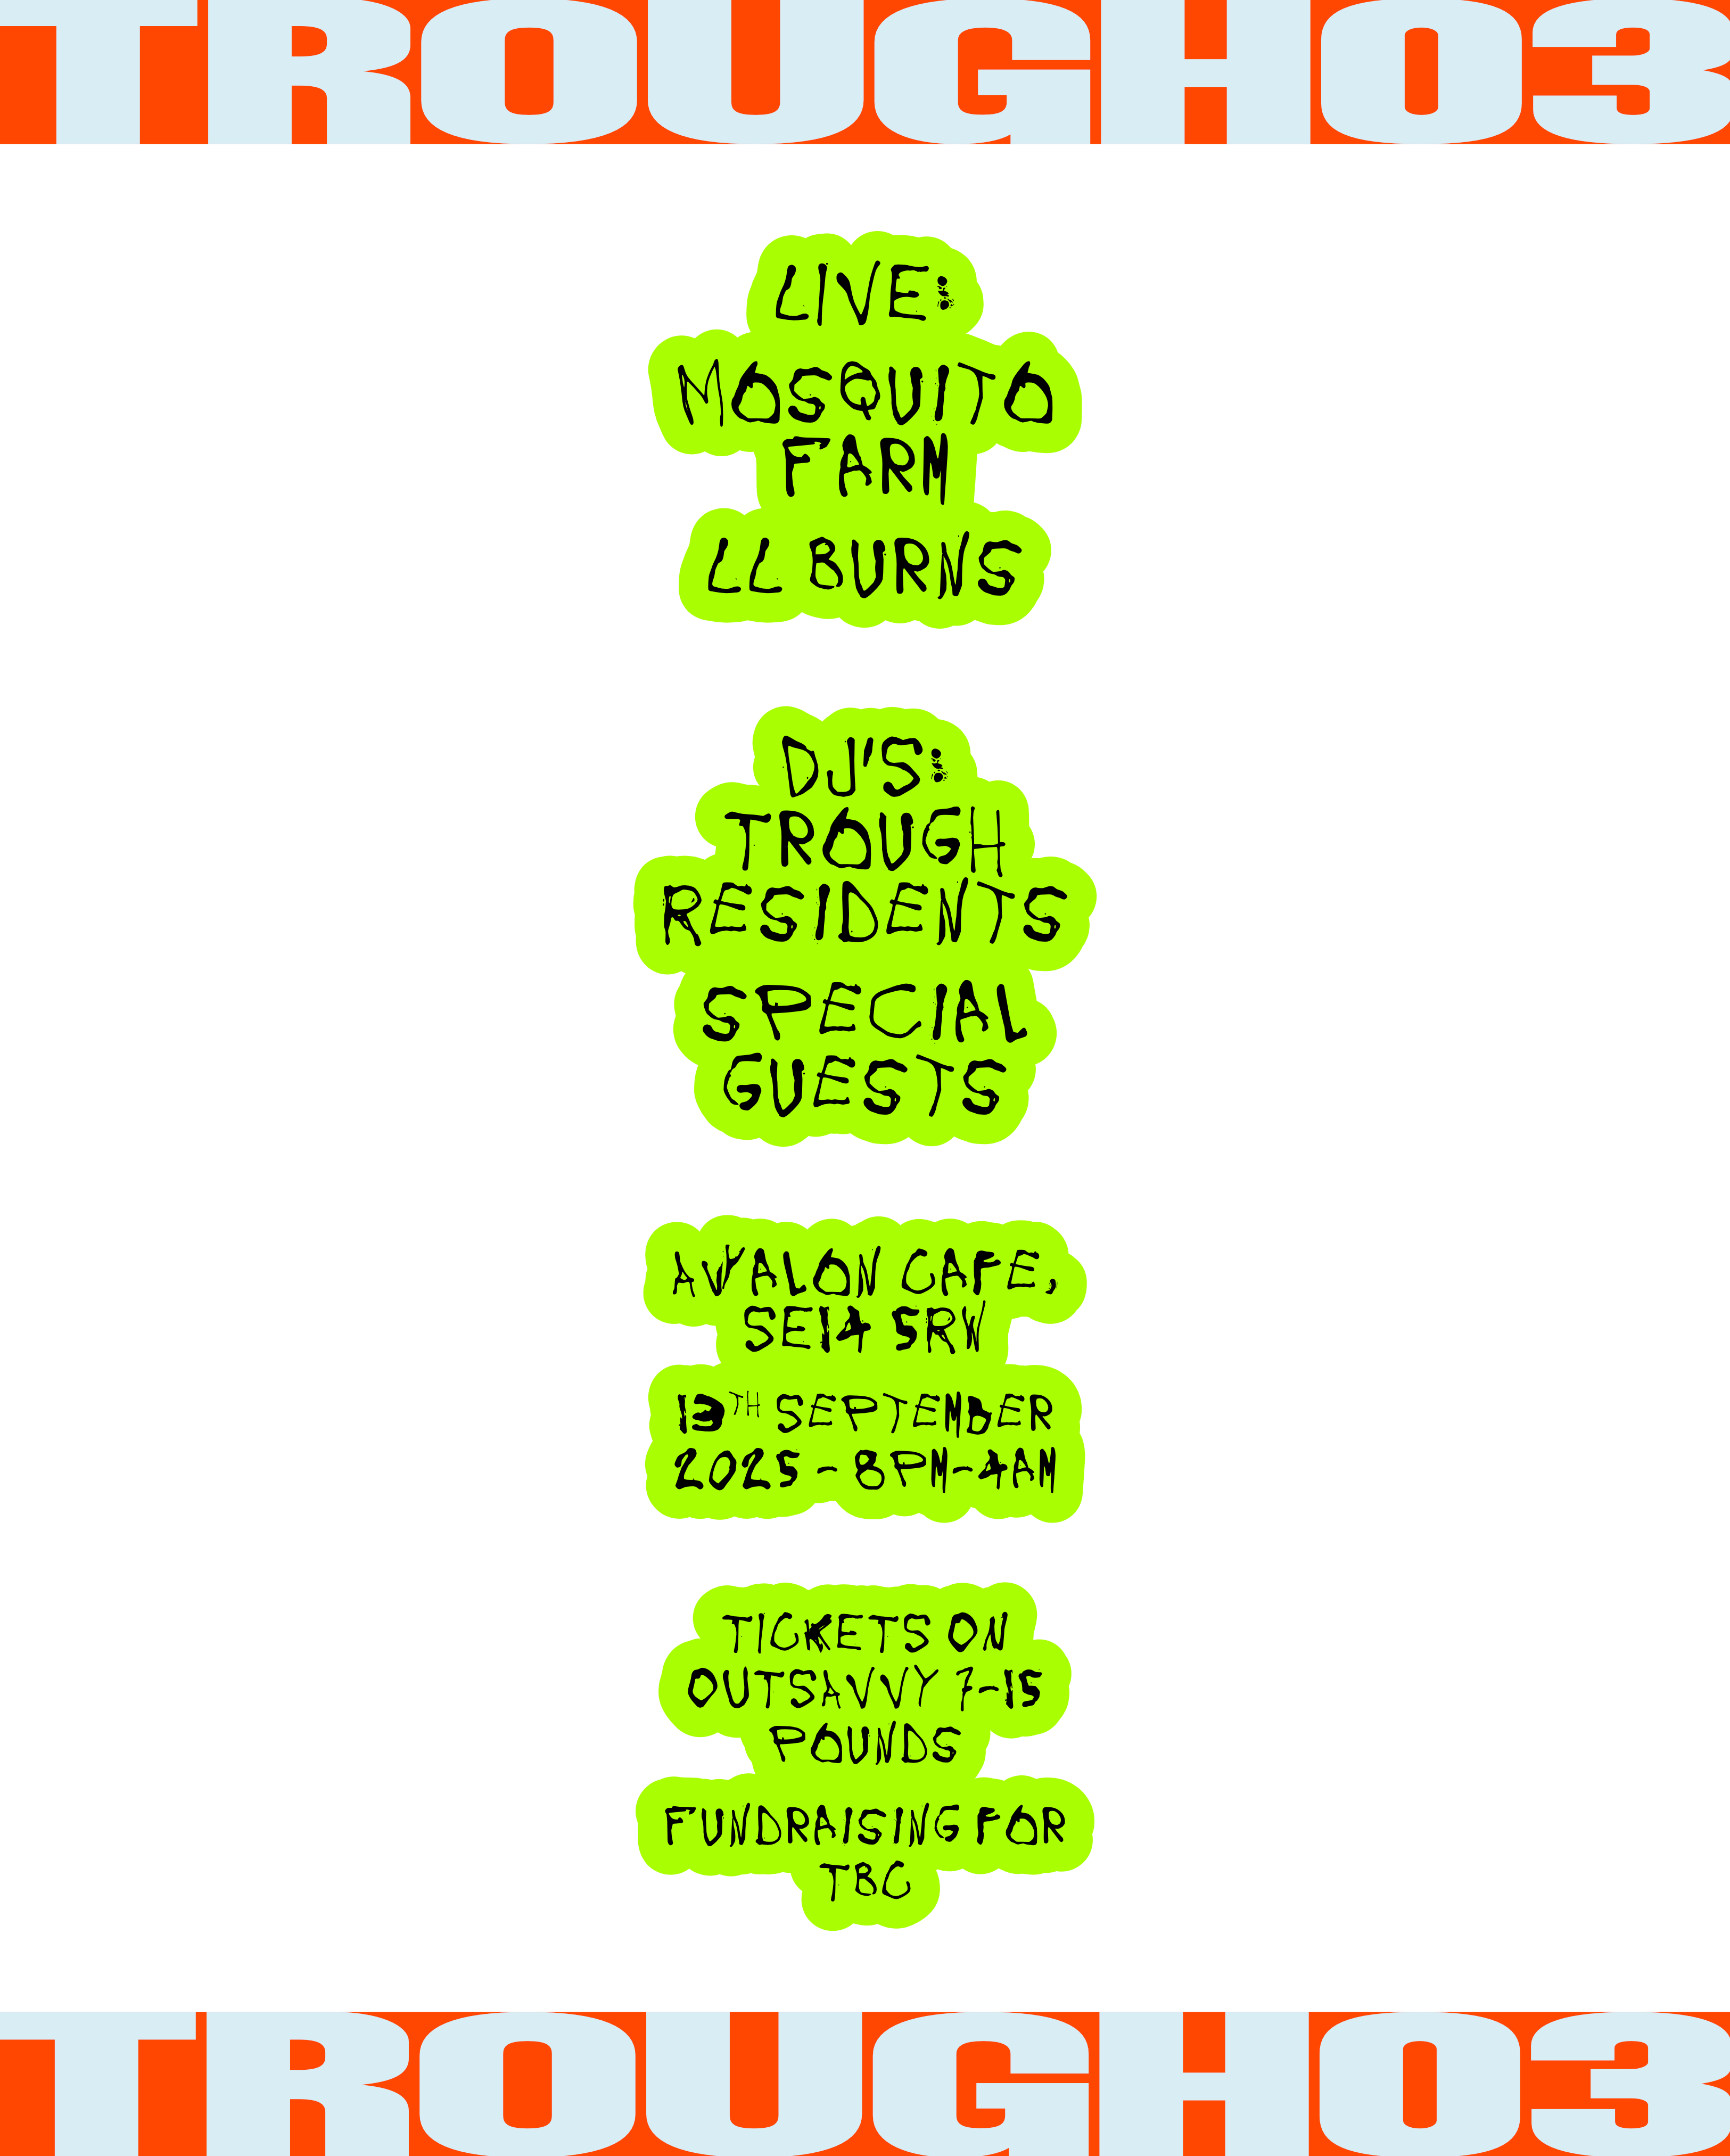 TROUGH03
LIVE:
MOSQUITO
FARM
LL BURNS
DJ'S:
TROUGH
RESIDENTS
SPECIAL
GUESTS
AVALON CAFE,
SE14 5RW
13TH SEPTEMBER
2025 - 8PM-4AM
TICKETS ON
OUTSAVVY 7-15
POUNDS
FUNDRAISING FOR
TBC
TROUGH03